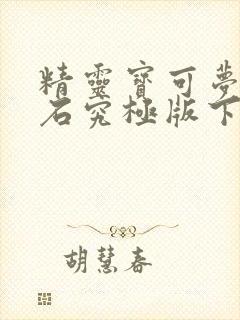 精靈寶可夢
石究極版下
胡慧春